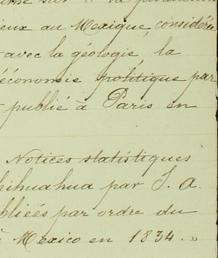 ieux au Mexique, considéré
avec la géologie la
économie politique par
publié à Paris en
Notices statistiques
hihuahua par J. A.
bliées par ordre du
à Mexico en 1834. »